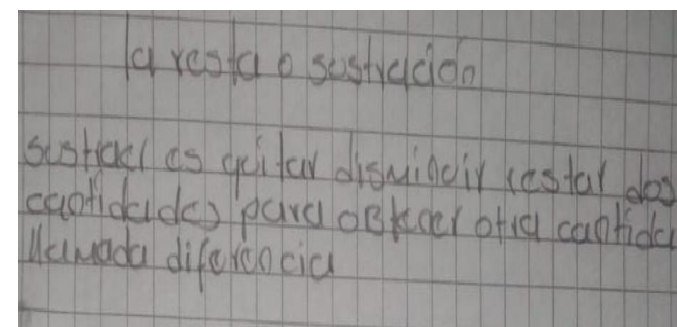 la resta o sustración
sustraer es quitar disminuir restar dos
cantidades para obtener otra cantida
llamada diferencia